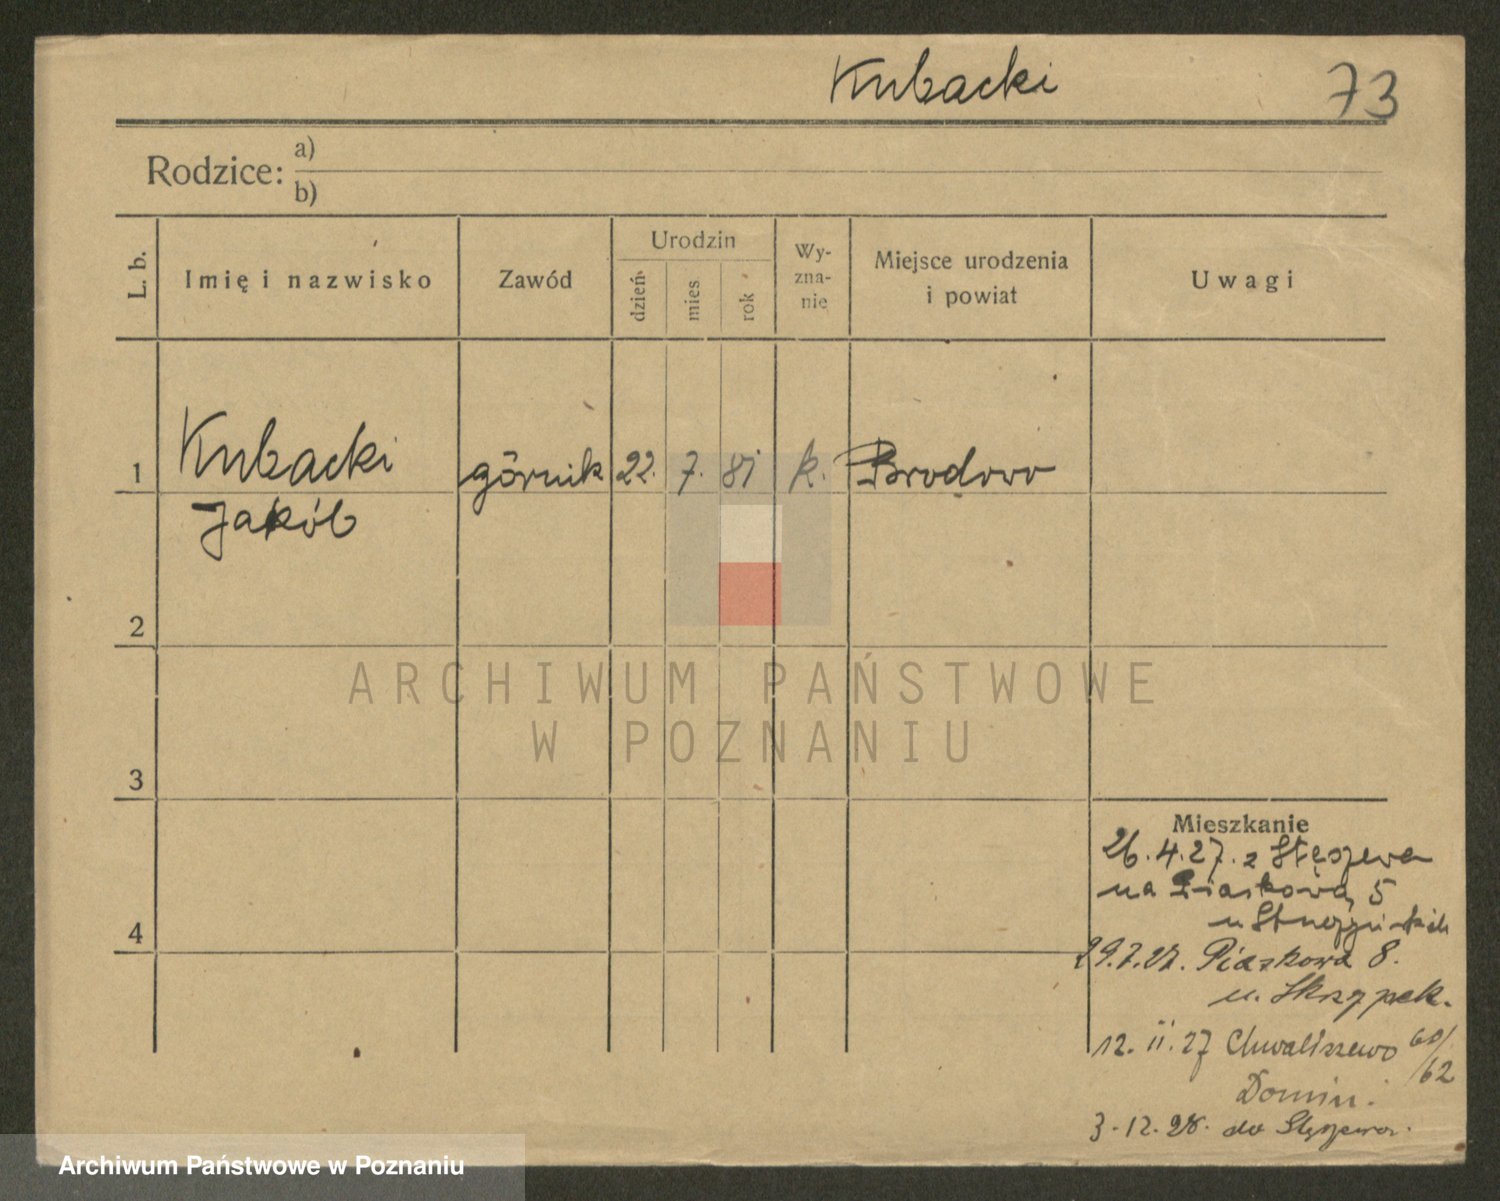 Kubacki 73
Rodzice: a)
b)
L. b.
Imię i nazwisko
Zawód
Urodzin
dzień
mies
rok
Wy-
zna-
nie
Miejsce urodzenia
i powiat
Uwagi
1 Kubacki górnik 22. 7. 81 k. Brodowo
Jakób
2
3
4
Mieszkanie
26.4.27. z Stęszewa
na Piaskową 5
u
29.7.27. Piaskowa 8.
u. Skrzypek.
12. 11. 27 Chwaliszewo 60/
62
Domin.
3.12.28. do Stęszewa.
ARCHIWUM PAŃSTWOWE
W POZNANIU
Archiwum Państwowe w Poznaniu